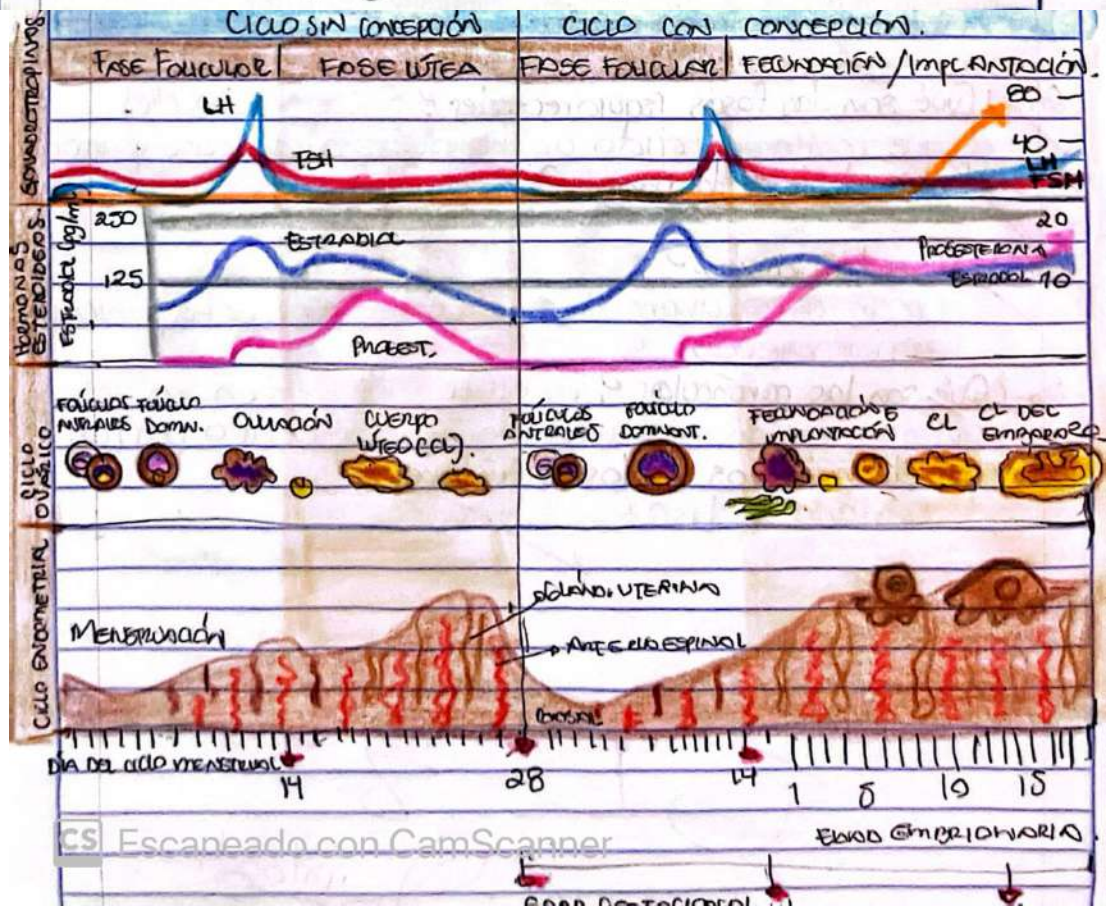 CICLO SIN CONCEPCIÓN
CICLO CON CONCEPCIÓN.
FASE FOLICULAR
FASE LÚTEA
FASE FOLICULAR
FECUNDACIÓN/IMPLANTACIÓN.
GONADOTROPINAS
LH
FSH
80
40
LH
FSH
HORMONAS ESTEROIDEAS.
ESTRADIOL (pg/ml)
250
125
ESTRADIOL
PROGEST.
20
PROGESTERONA
ESTRADIOL 10
CICLO OVÁRICO
FOLÍCULOS ANTRALES
FOLÍCULO DOMN.
OVULACIÓN
CUERPO LÚTEO (CL).
FOLÍCULOS ANTRALES
FOLÍCULO DOMINANT.
FECUNDACIÓN E IMPLANTACIÓN
CL
CL DEL EMBARAZO
CICLO ENDOMETRIAL
MENSTRUACIÓN
GLÁND. UTERINA
ARTERIA ESPINAL
DÍA DEL CICLO MENSTRUAL
14
28
14
1 5 10 15
EDAD EMBRIONARIA
CS Escaneado con CamScanner
EDAD GESTACIONAL